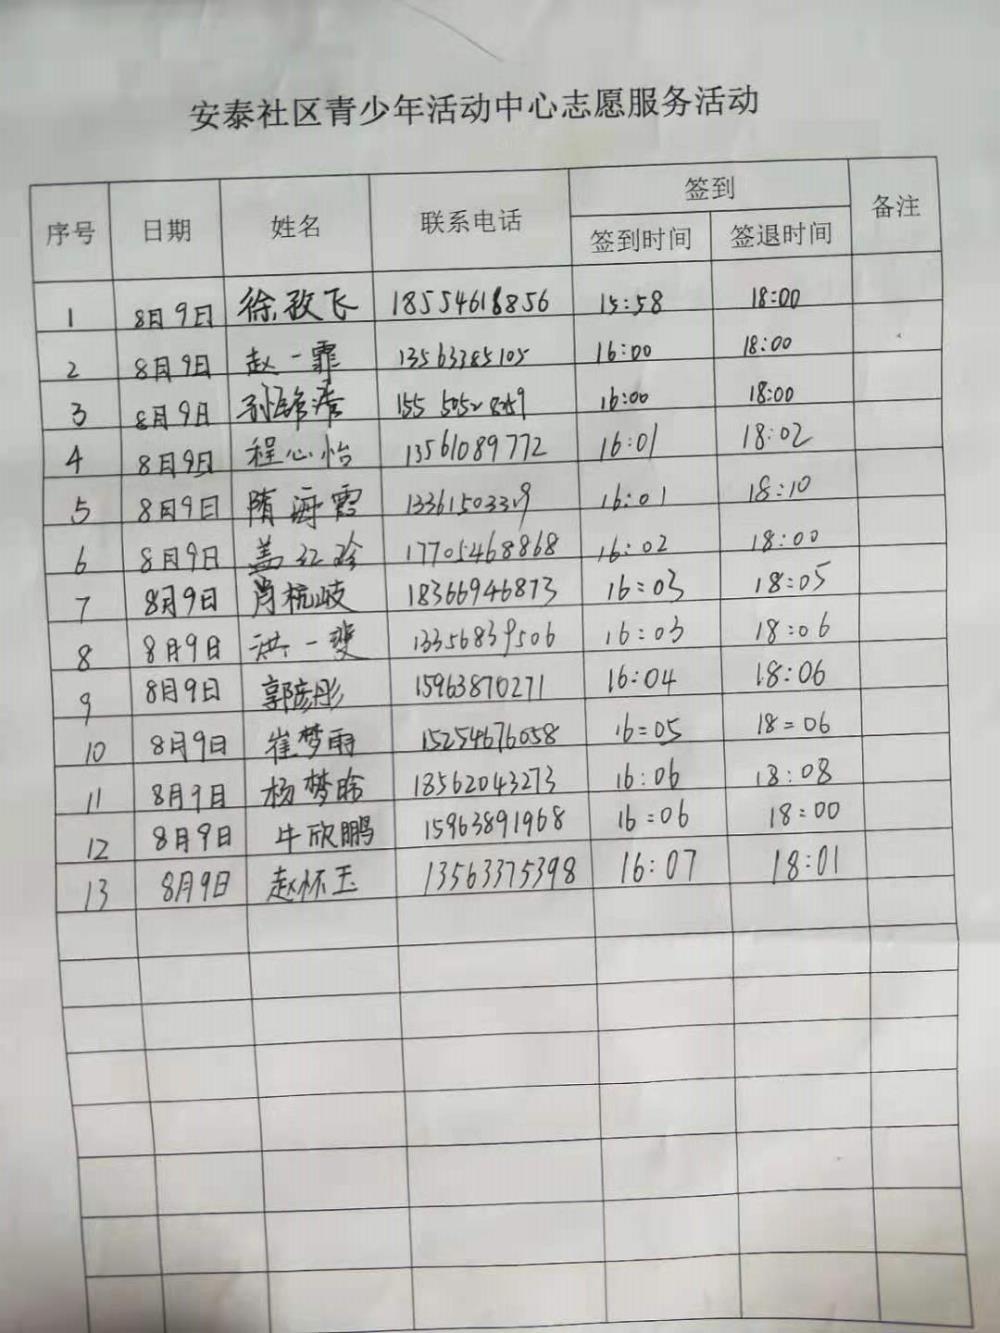 安泰社区青少年活动中心志愿服务活动
序号 日期 姓名 联系电话 签到 备注
签到时间 签退时间
1 8月9日 徐孜飞 18554618856 15:58 18:00
2 8月9日 赵一霏 13563385105 16:00 18:00
3 8月9日 孙 155 5052 16:00 18:00
4 8月9日 程心怡 13561089772 16:01 18:02
5 8月9日 隋海霞 13361503319 16:01 18:10
6 8月9日 盖红珍 17705468868 16:02 18:00
7 8月9日 肖杭岐 18366946873 16:03 18:05
8 8月9日 洪一斐 13356839506 16:03 18:06
9 8月9日 郭彦彤 15963870271 16:04 18:06
10 8月9日 崔梦雨 15254676058 16:05 18:06
11 8月9日 杨梦晗 18562043273 16:06 18:08
12 8月9日 牛欣鹏 15963891968 16:06 18:00
13 8月9日 赵怀玉 13563375398 16:07 18:01